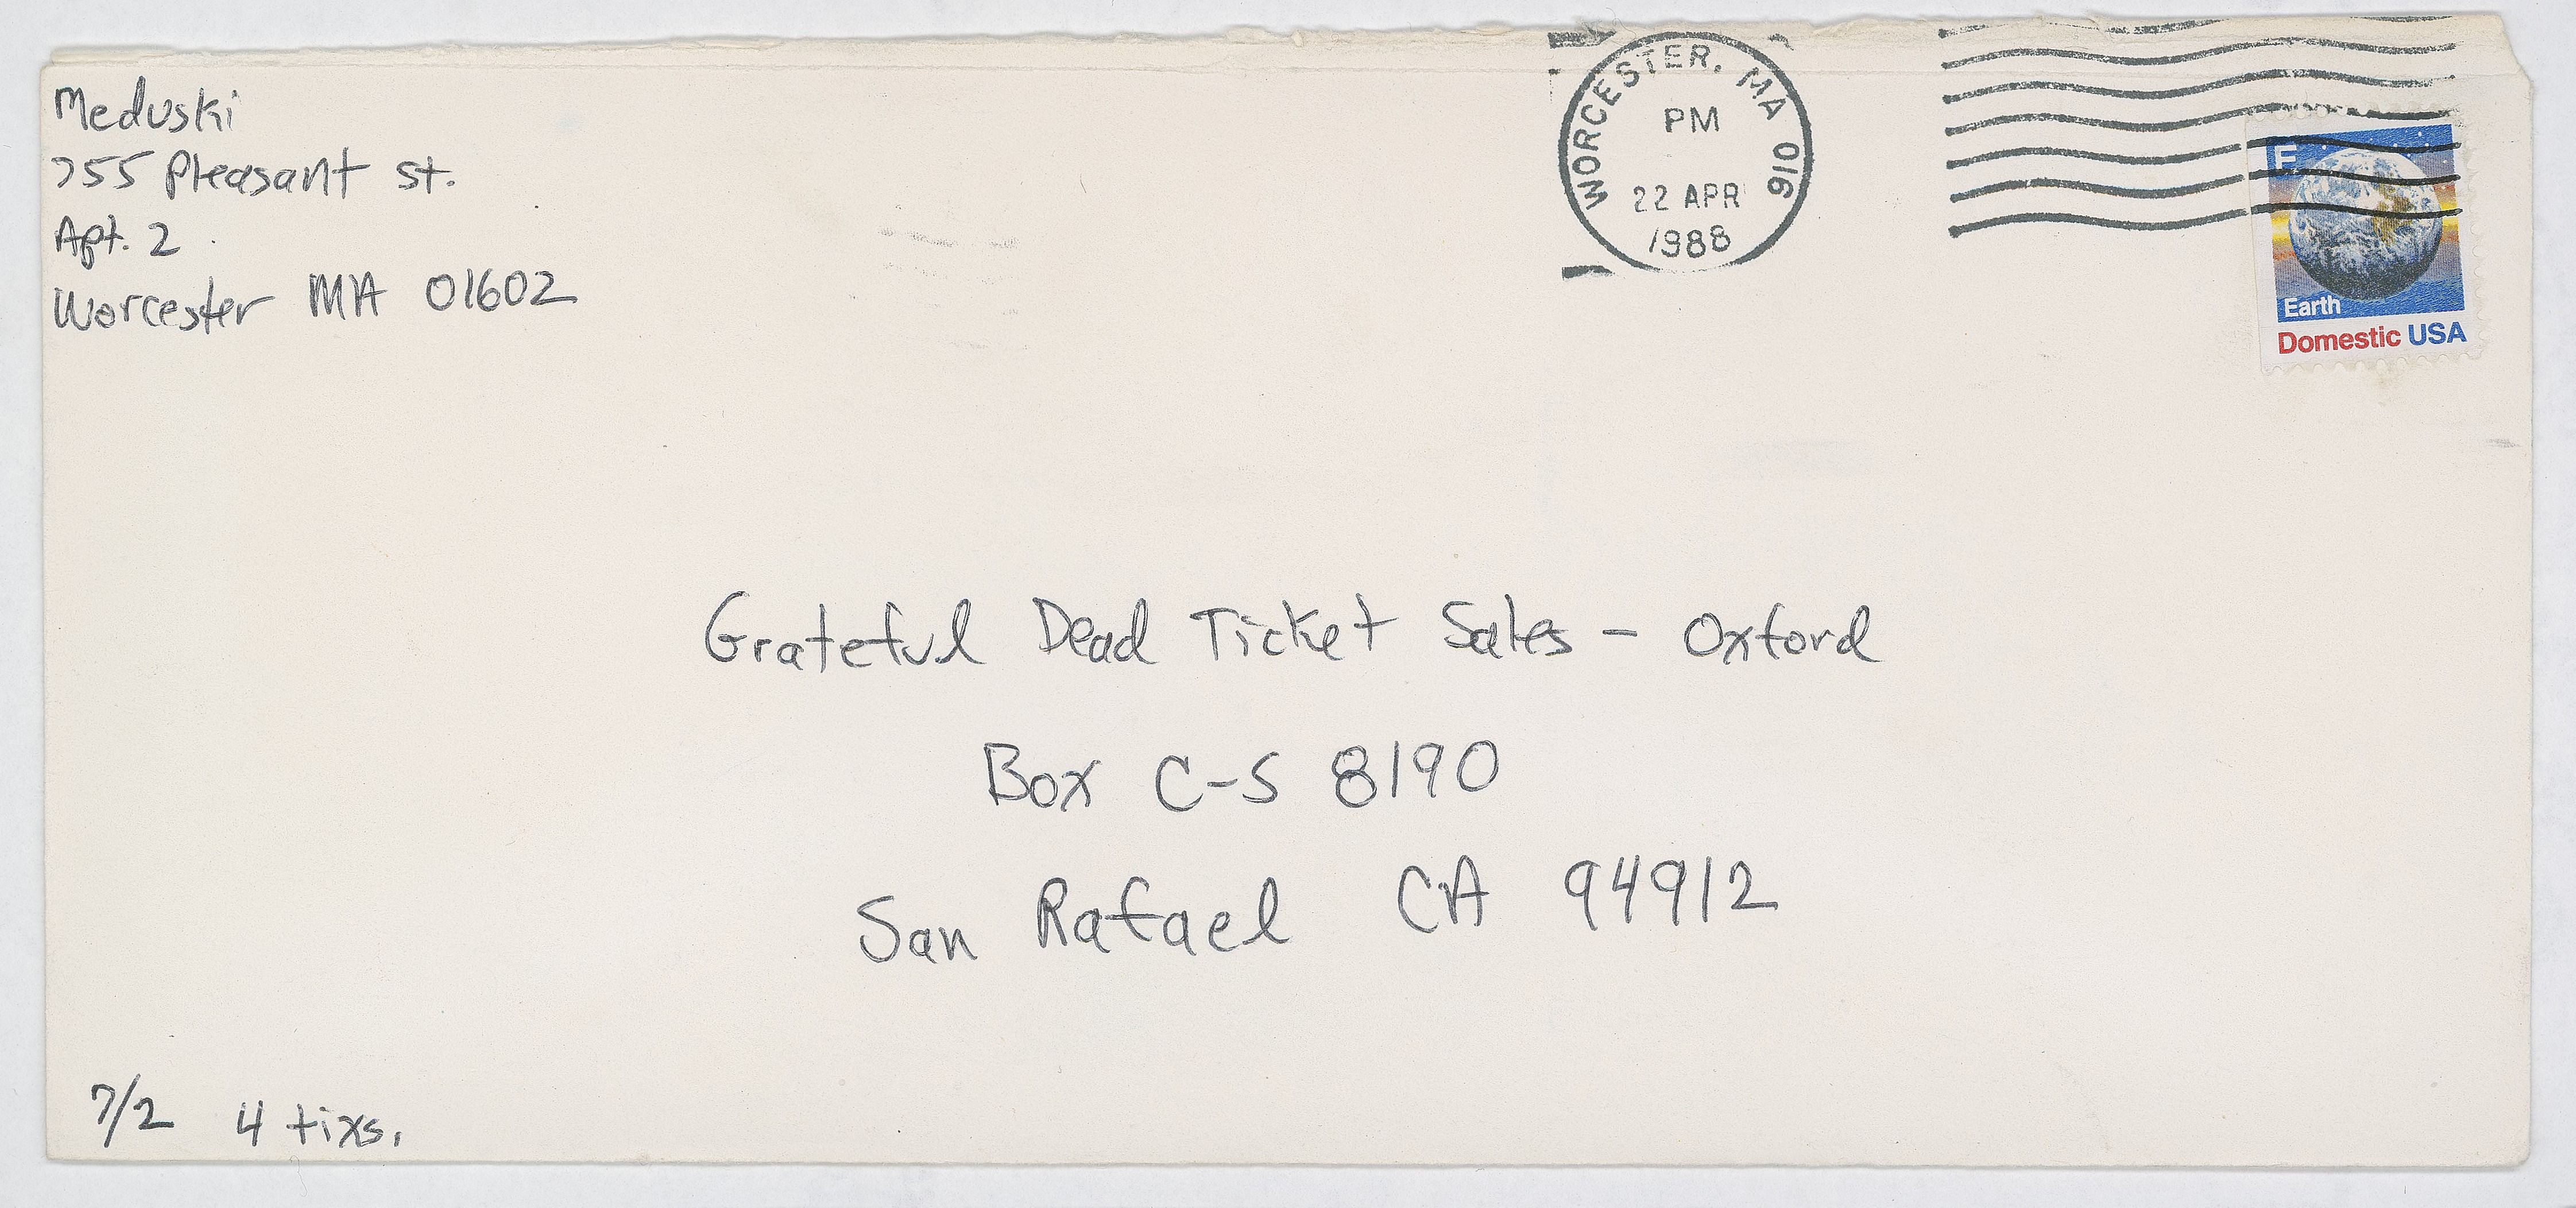 Meduski
755 Pleasant st.
Apt. 2
Worcester MA 01602
WORCESTER, MA 016
PM
22 APR
1988
E
Earth
Domestic USA
Grateful Dead Ticket Sales - Oxford
Box C-S 8190
San Rafael CA 94912
7/2 4 tixs.